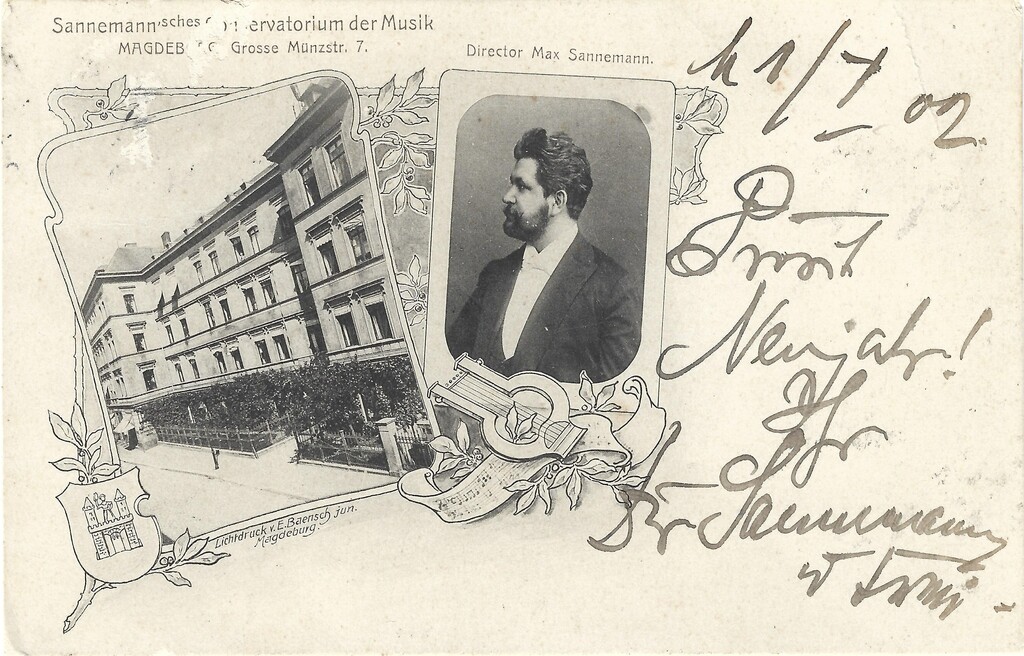 Sannemann'sches Conservatorium der Musik
MAGDEBURG, Grosse Münzstr. 7.
Director Max Sannemann.
1/1 02.
Prosit
Neujahr!
Ihr
Dir Sannemann
u Frau.
Lichtdruck v. E. Baensch jun.
Magdeburg.